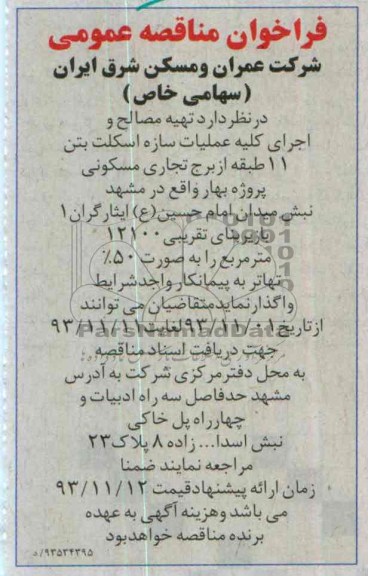 فراخوان مناقصه عمومی
شرکت عمران ومسکن شرق ایران
(سهامی خاص)
درنظردارد تهیه مصالح و
اجرای کلیه عملیات سازه اسکلت بتن
۱۱طبقه ازبرج تجاری مسکونی
پروژه بهار واقع در مشهد
نبش میدان امام حسین(ع) ایثارگران۱
بازیربنای تقریبی ۱۲۱۰۰
مترمربع را به صورت ۵۰٪
تهاتر به پیمانکار واجدشرایط
واگذارنماید متقاضیان می توانند
ازتاریخ ۹۳/۱۱/۰۱ لغایت ۹۳/۱۱/۱۱
جهت دریافت اسناد مناقصه
به محل دفتر مرکزی شرکت به آدرس
مشهد حدفاصل سه راه ادبیات و
چهارراه پل خاکی
نبش اسدا... زاده ۸ پلاک۲۳
مراجعه نمایند ضمنا
زمان ارائه پیشنهادقیمت ۹۳/۱۱/۱۲
می باشد وهزینه آگهی به عهده
برنده مناقصه خواهدبود
۹۳۵۳۴۳۹۵/د